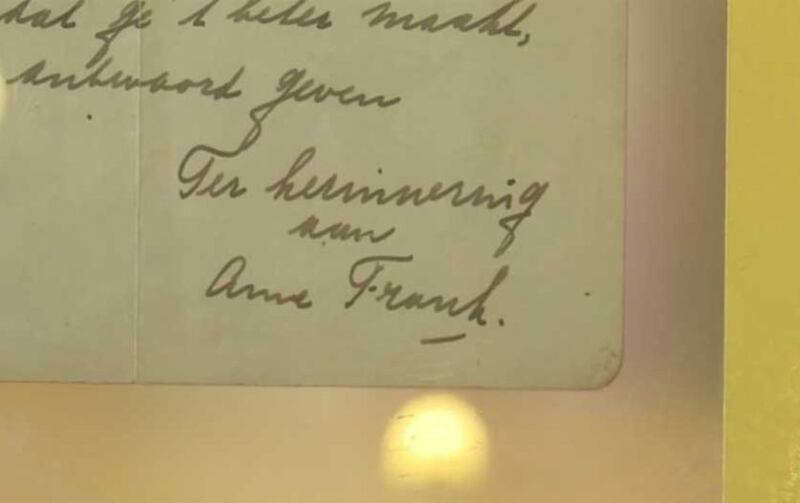 dat ge 't beter maakt,
antwoord geven
Ter herinnering
aan
Anne Frank.